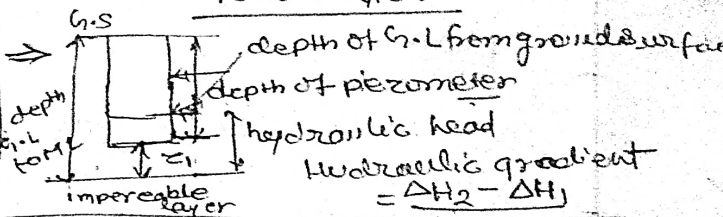 G.S
⇒ depth of G.L from ground surface
depth of piezometer
depth G.L to M
hydraulic head
z₁
Hydraulic gradient
impereable layer
= ΔH₂ - ΔH₁